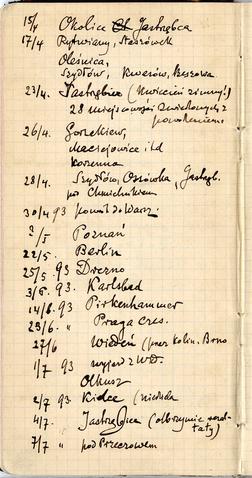 15/4 Okolice Jastrzębca
17/4 Rytwiany, Staszówek
Oleśnica,
Szydłów, Kurozw, Beszowa
23/4. Jastrzębiec (Kwiecień zimny!)
28 miejscowości zwiedzonych z
powodzeniem.
26/4. Gorzkiew,
Maciejowice itd
Korzenna
28/4. Szydłów, Ossówka, Jastrzęb.
pod Chmielnikiem
30/4 93 powrót do Warsz.
2/5 Poznań
22/5. Berlin
25/5 .93 Drezno
3/6. 93. Karlsbad
14/6. 93. Pirkenhammer
23/6. " Praga czes.
27/6 Wiedeń (przez Kolin. Brno
1/7 93 wyjazd z Wd.
Olkusz
2/7 93. Kielce (niedziela
4/7. Jastrzębiec (olbrzymie
7/7 " pod Pszczowem